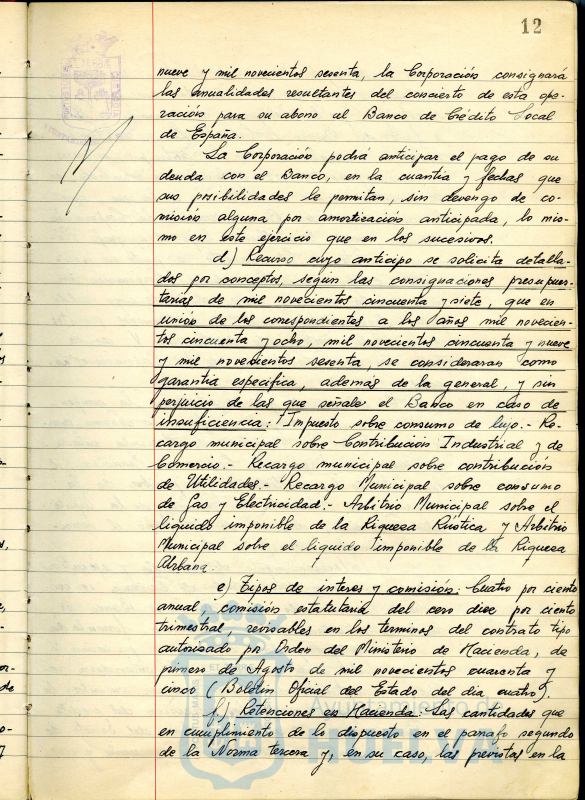 12
nueve y mil novecientos sesenta, la Corporación consignará
las anualidades resultantes del concierto de esta ope-
ración para su abono al Banco de Crédito Local
de España.
La Corporación podrá anticipar el pago de su
deuda con el Banco, en la cuantia y fechas que
sus posibilidades le permitan, sin devengo de co-
misión alguna por amortización anticipada, lo mis-
mo en este ejercicio que en los sucesivos.
d) Recurso cuyo anticipo se solicita detalla-
dos por conceptos, según las consignaciones presupues-
tarias de mil novecientos cincuenta y siete, que en
unión de los correspondientes a los años mil novecien-
tos cincuenta y ocho, mil novecientos cincuenta y nueve
y mil novecientos sesenta, se consideraran como
garantia especifica, además de la general, y sin
perjuicio de las que señale el Banco en caso de
insuficiencia: Impuesto sobre consumo de lujo.- Re-
cargo municipal sobre Contribución Industrial y de
Comercio.- Recargo municipal sobre contribución
de Utilidades.- Recargo Municipal sobre consumo
de Gas y Electricidad.- Arbitrio Municipal sobre el
liquido imponible de la Riqueza Rústica y Arbitrio
Municipal sobre el liquido imponible de la Riqueza
Urbana.
e) Tipos de interes y comisión: Cuatro por ciento
anual, comisión estatutaria del cero doce por ciento
trimestral, revisables en los terminos del contrato tipo
autorizado por Orden del Ministerio de Hacienda, de
primero de Agosto de mil novecientos cuarenta y
cinco (Boletin Oficial del Estado del dia cuatro).
f) Retenciones en Hacienda: Las cantidades que
en cumplimiento de lo dispuesto en el parrafo segundo
de la Norma tercera y, en su caso, las previstas en la